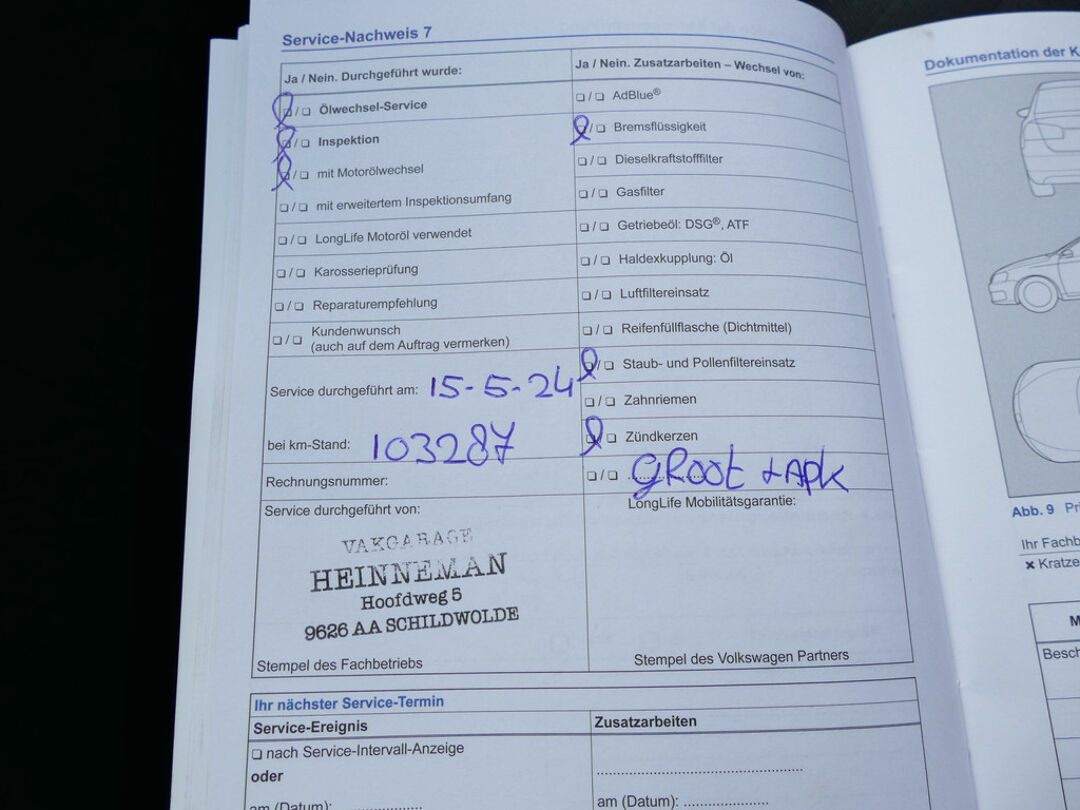 Service-Nachweis 7
Ja / Nein. Durchgeführt wurde:
❏ / ❏ Ölwechsel-Service
❏ / ❏ Inspektion
❏ / ❏ mit Motorölwechsel
❏ / ❏ mit erweitertem Inspektionsumfang
❏ / ❏ LongLife Motoröl verwendet
❏ / ❏ Karosserieprüfung
❏ / ❏ Reparaturempfehlung
❏ / ❏ Kundenwunsch
(auch auf dem Auftrag vermerken)
Service durchgeführt am: 15-5-24
bei km-Stand: 103287
Rechnungsnummer:
Service durchgeführt von:
VAKGARAGE
HEINNEMAN
Hoofdweg 5
9626 AA SCHILDWOLDE
Stempel des Fachbetriebs
Ja / Nein. Zusatzarbeiten – Wechsel von:
❏ / ❏ AdBlue®
❏ / ❏ Bremsflüssigkeit
❏ / ❏ Dieselkraftstofffilter
❏ / ❏ Gasfilter
❏ / ❏ Getriebeöl: DSG®, ATF
❏ / ❏ Haldexkupplung: Öl
❏ / ❏ Luftfiltereinsatz
❏ / ❏ Reifenfüllflasche (Dichtmittel)
❏ / ❏ Staub- und Pollenfiltereinsatz
❏ / ❏ Zahnriemen
❏ / ❏ Zündkerzen
❏ / ❏ GROOT + APK
LongLife Mobilitätsgarantie:
Stempel des Volkswagen Partners
Ihr nächster Service-Termin
Service-Ereignis
❏ nach Service-Intervall-Anzeige
oder
am (Datum): ....................
Zusatzarbeiten
..................................................
am (Datum): ....................
Dokumentation der K
Abb. 9 Pri
Ihr Fachb
✗ Kratze
M
Besch